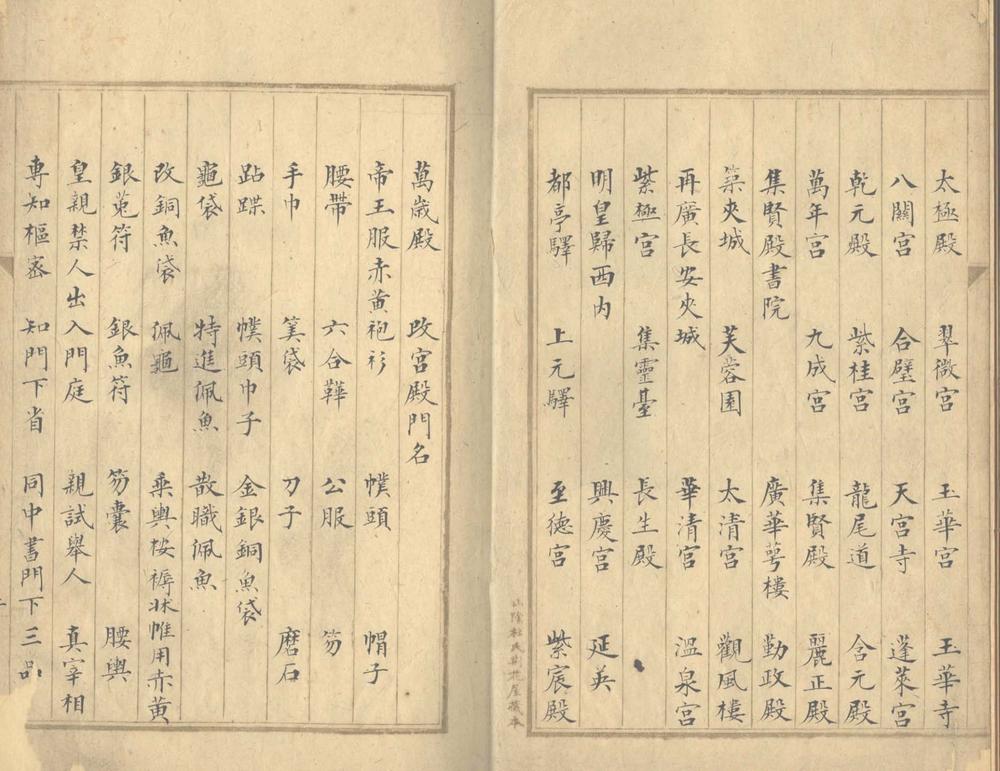 太極殿 翠微宮 玉華宮 玉華寺
八關宮 合璧宮 天宮寺 蓬萊宮
乾元殿 紫桂宮 龍尾道 含元殿
萬年宮 九成宮 集賢殿 麗正殿
集賢殿書院 廣華萼樓 勤政殿
築夾城 芙蓉園 太清宮 觀風樓
再廣長安夾城 華清宮 溫泉宮
紫極宮 集靈臺 長生殿
明皇歸西內 興慶宮 延英
都亭驛 上元驛 至德宮 紫宸殿
山陰杜氏荊花屋藏本
萬歲殿 改宮殿門名
帝王服赤黃袍衫 幞頭 帽子
腰帶 六合鞾 公服 笏
手巾 筭袋 刀子 磨石
跕蹀 幞頭巾子 金銀銅魚袋
龜袋 特進佩魚 散職佩魚
改銅魚袋 佩龜 乘輿桉褥牀帷用赤黃
銀菟符 銀魚符 笏囊 腰輿
皇親禁人出入門庭 親試舉人 真宰相
專知樞密 知門下省 同中書門下三品